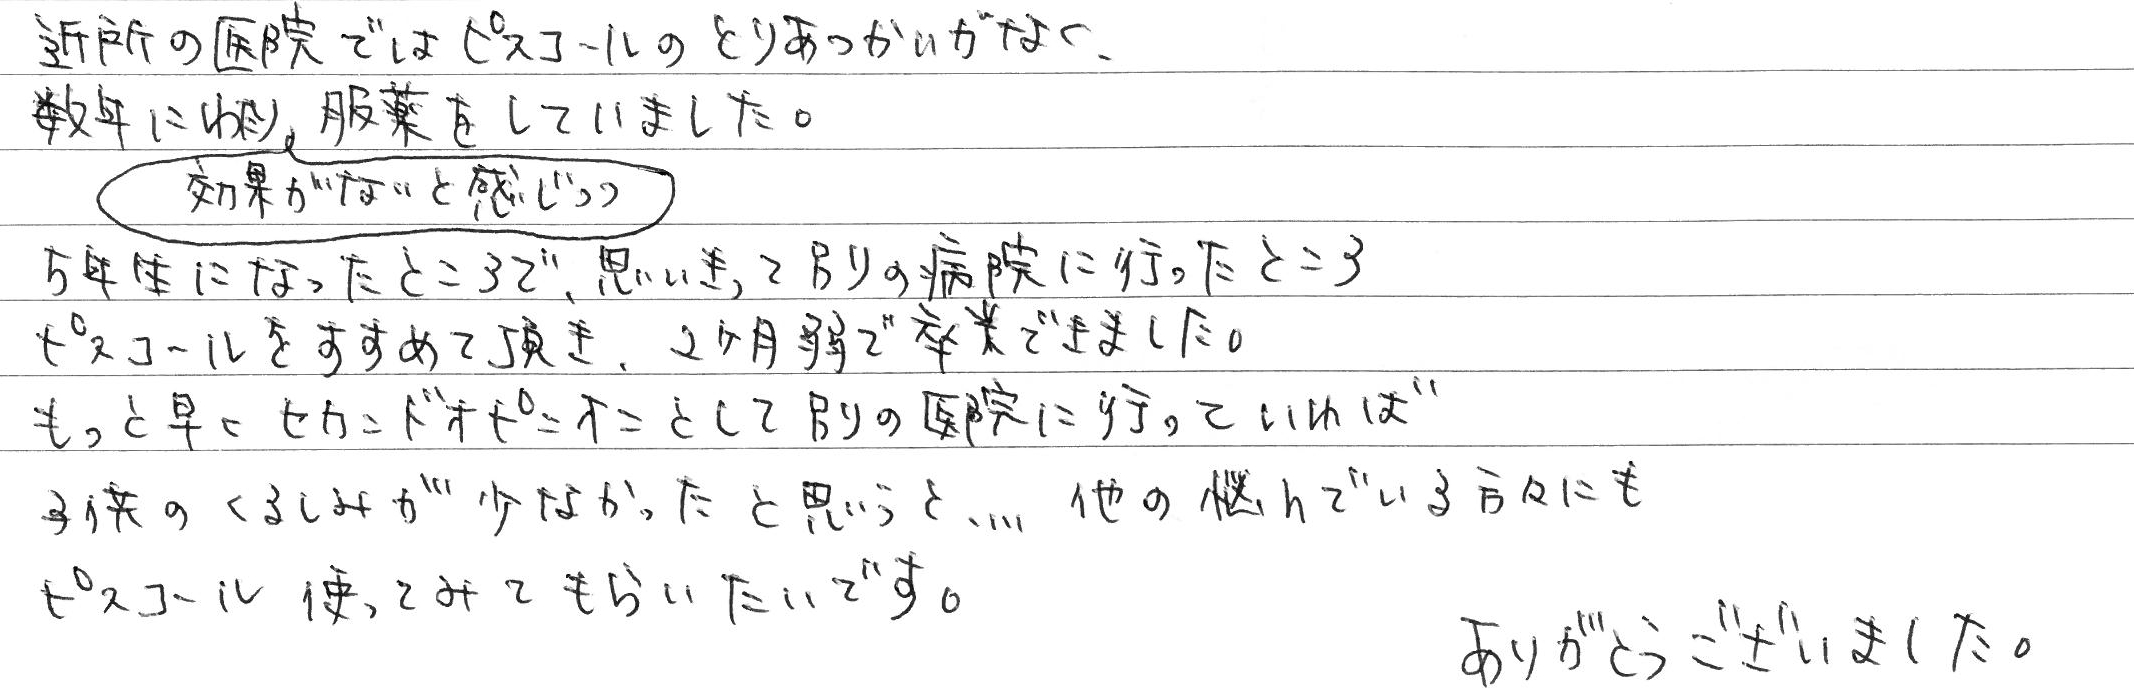 近所の医院ではピスコールのとりあつかいがなく、
数年にわたり、服薬をしていました。
効果がないと感じつつ
5年生になったところで、思いきって別の病院に行ったところ
ピスコールをすすめて頂き、2ヶ月弱で卒業できました。
もっと早くセカンドオピニオンとして別の医院に行っていれば
子供のくるしみが少なかったと思うと、… 他の悩んでいる方々にも
ピスコール使ってみてもらいたいです。
ありがとうございました。